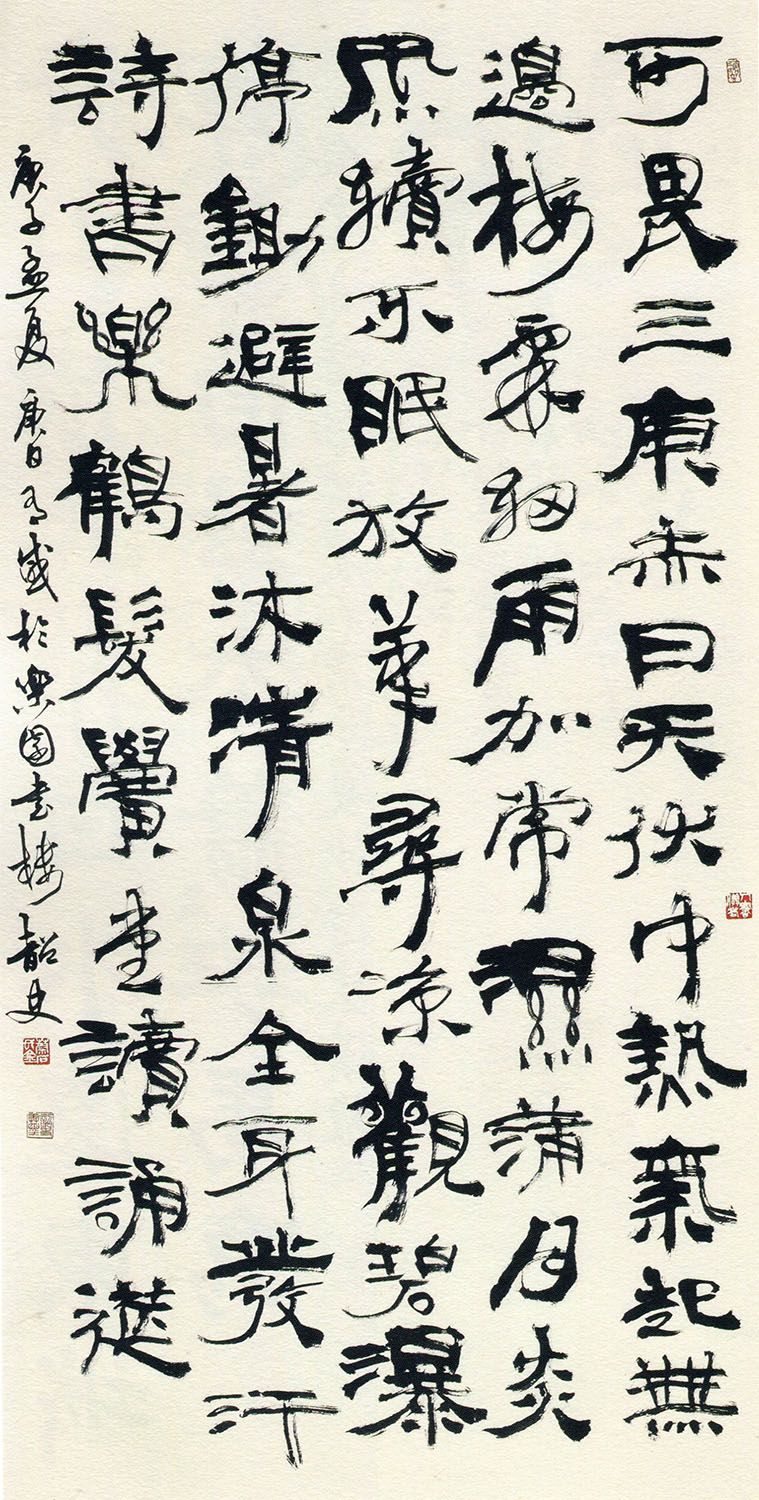 可畏三庚赤日天伏中熱氣起無
邊梅霖細雨加常濕蒲月炎
續不眠放筆尋涼觀碧瀑
停鋤避暑沐清泉全身發汗
詩書樂鶴髮黌堂讀誦
庚子孟夏庚日有感於樂園書樓韶史